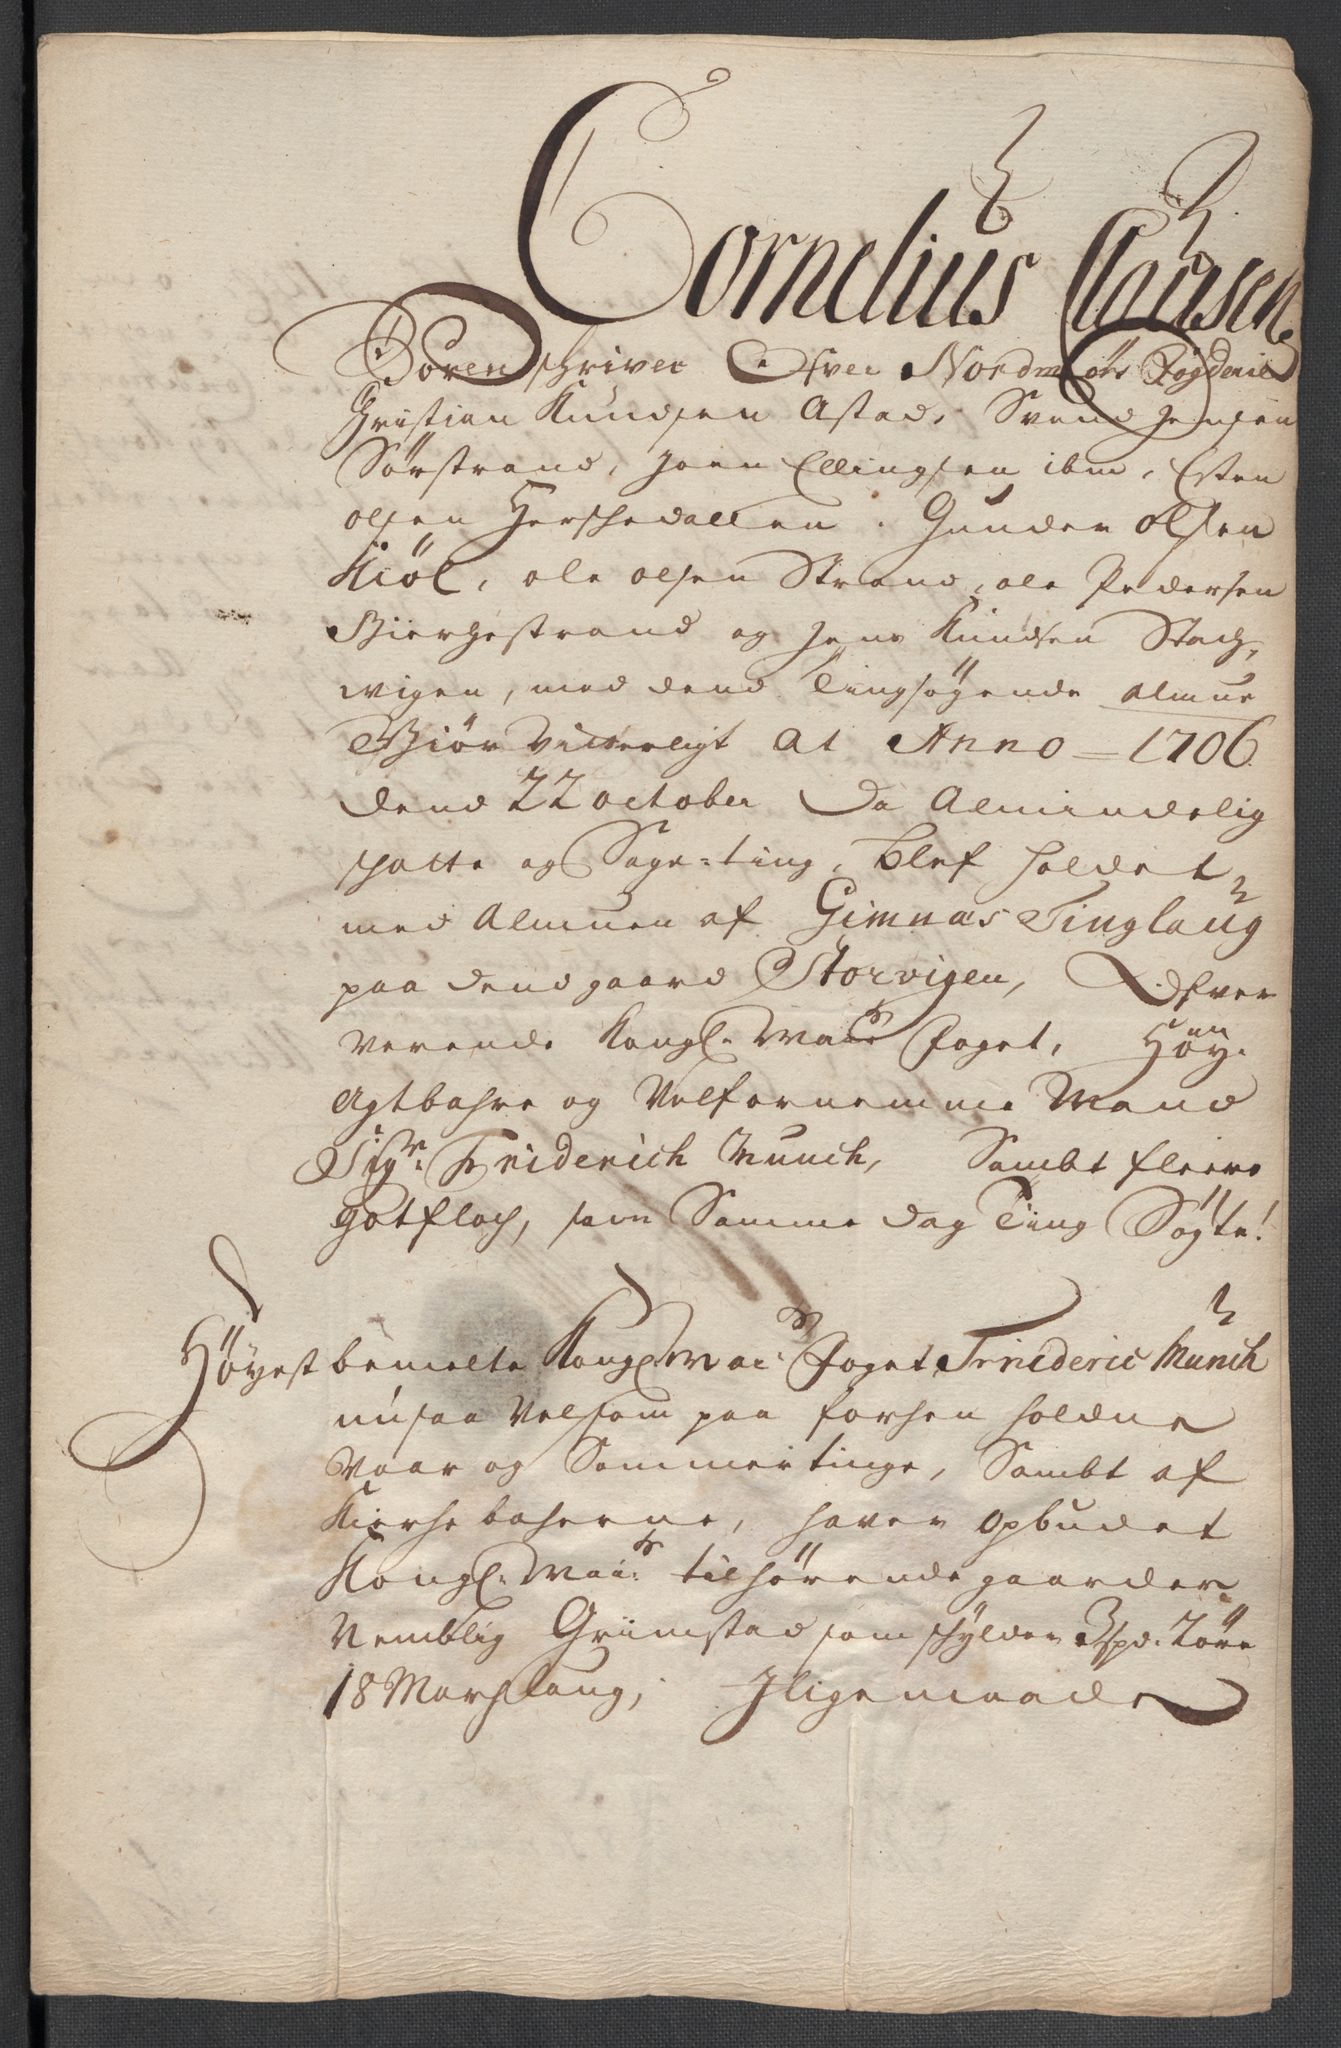 Cornelius Clausen
Sorenschriver Ofver Nordmörs Fogderie
Christian Knudsen Astad, Svend Jensen
Sörstrand, Joen Ellingsen ibm, Esten
olsen Herschedallen, Gunder olsen
Kiöl, ole olsen Strand, ole Pedersen
Bierchestrand og Jens Knudsen Stach,
wigen, med dend Tingsøgende almue
Giör vitterligt At Anno 1706
dend 22 october Da Almindelig
schatte og Sage-ting, blef holdet
med Almuen af Gimnæs Tinglaug
paa dend gaard Storvigen, Ofver
verende Kongl. Maits Foget, Høy-
Agtbahre og Velfornemme Mand
Sigr. Friderich Munch, Sambt fleere
gotfloch, som Samme dag Ting Søgte!
Høyestbemelte Kongl Mai: Foget Friederic Munch
nu saa Vel som paa forhen holdne
Vaar og Sommertinge, Sambt af
Kierchebacherne, haver opbudet
Kongl. Mai: tilhörende gaarder
Nemblig Griimstad som schylder 3 spd. 2 öre
18 Marchlaug, Jligemaade